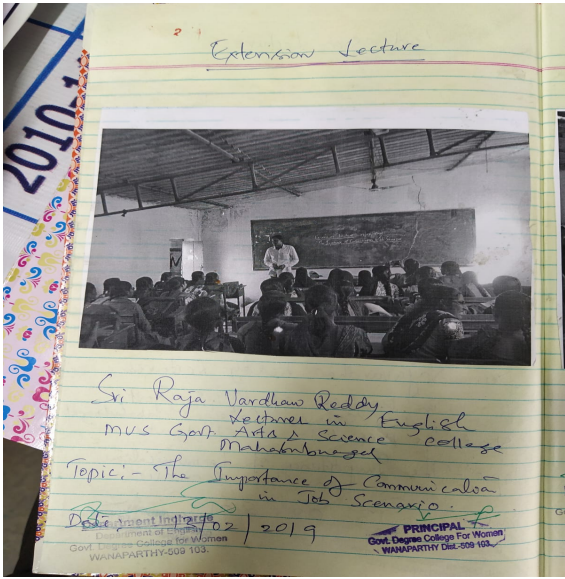 2010-1
2
Extension Lecture
Sri Raja Vardhan Reddy
Lecturer in English
MVS Govt Arts & Science College
Mahabubnagar
Topic:- The Importance of Communication
in Job Scenario.
Date: /02/2019
Department Incharge
Department of English
Govt. Degree College for Women
WANAPARTHY-509 103.
PRINCIPAL
Govt. Degree College For Women
WANAPARTHY Dist.-509 103.